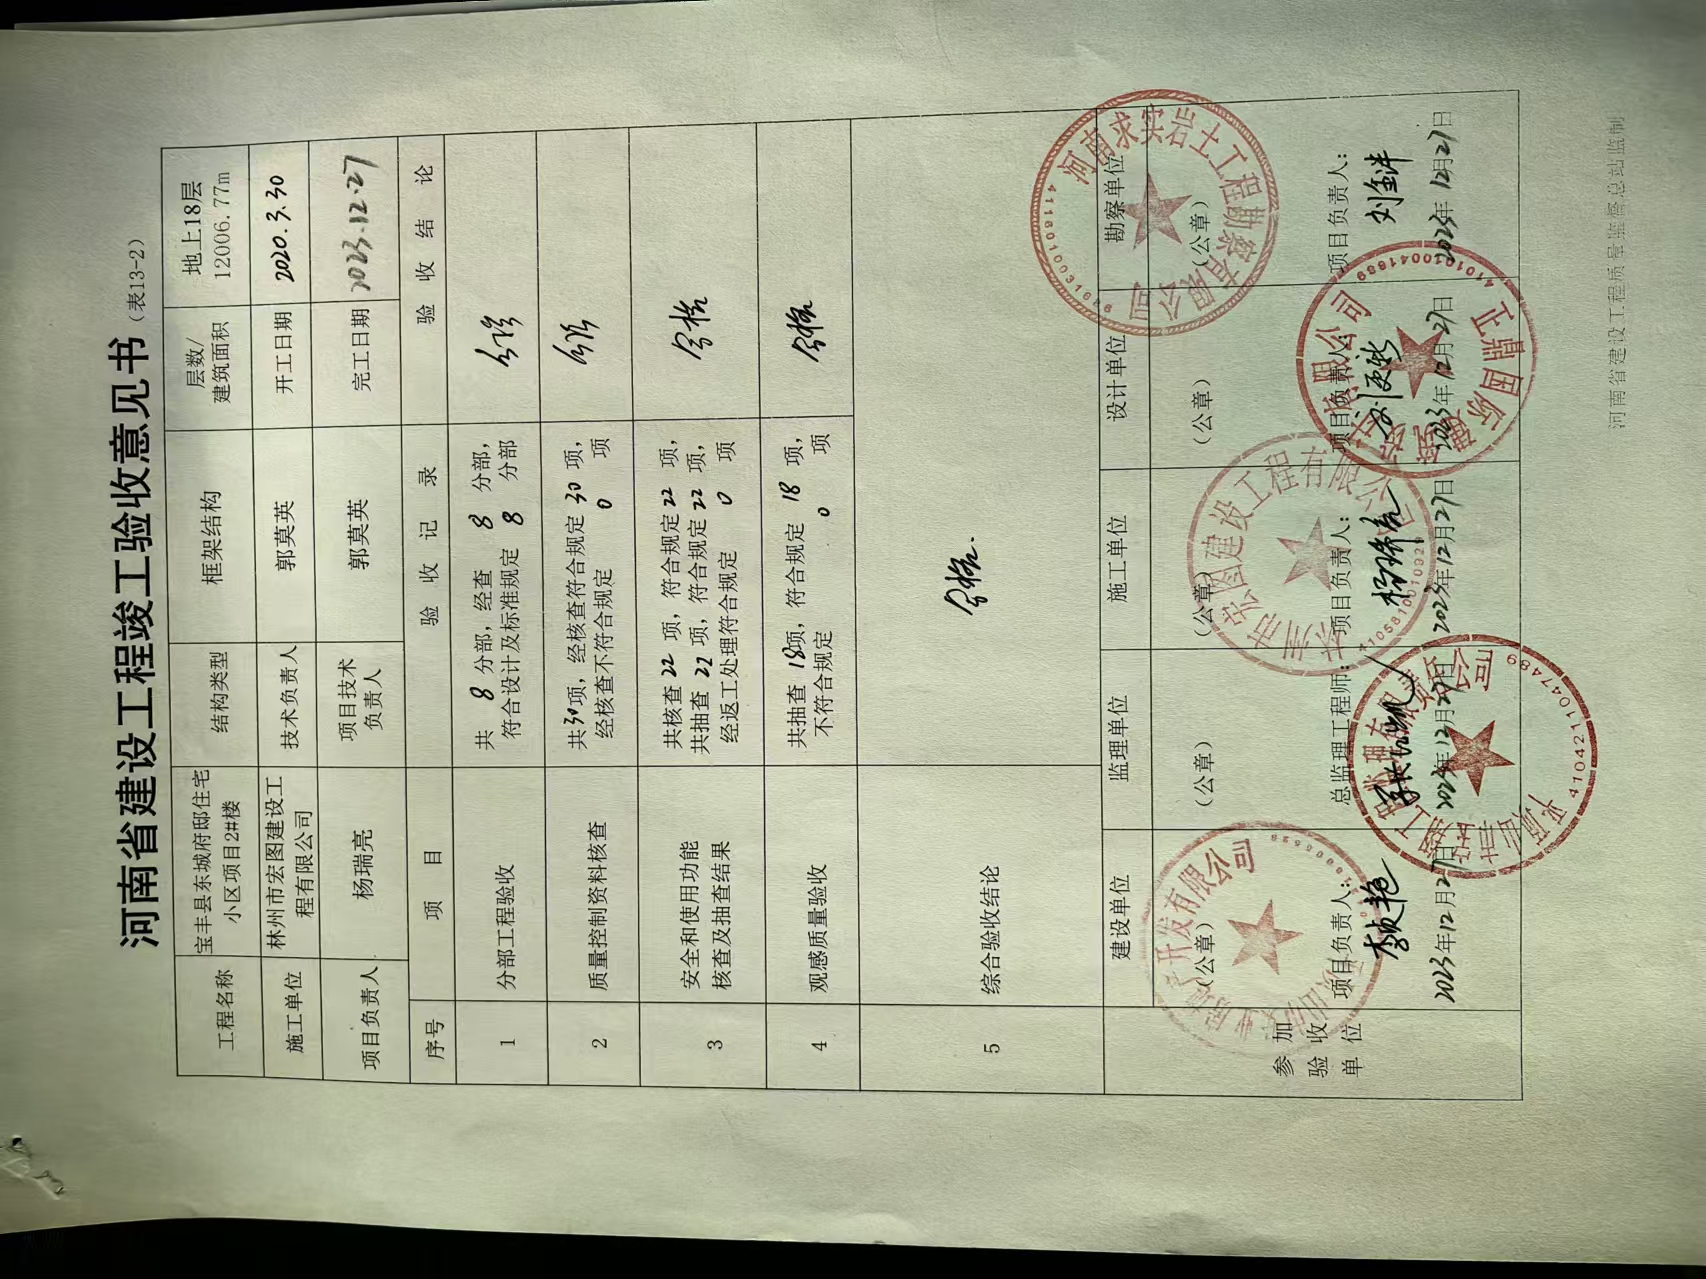 河南省建设工程竣工验收意见书
(表13-2)
工程名称 宝丰县东城府邸住宅小区项目2#楼 结构类型 框架结构 层数/建筑面积 地上18层 12006.77m
施工单位 林州市宏图建设工程有限公司 技术负责人 郭莫英 开工日期 2020.3.30
项目负责人 杨瑞亮 项目技术负责人 郭莫英 完工日期 2023.12.27
序号 项 目 验 收 记 录 验 收 结 论
1 分部工程验收 共 8 分部，经查 8 分部，
符合设计及标准规定 8 分部
合格
2 质量控制资料核查 共30项，经核查符合规定 30 项，
经核查不符合规定 0 项
合格
3 安全和使用功能核查及抽查结果 共核查 22 项，符合规定 22 项，
共抽查 22 项，符合规定 22 项，
经返工处理符合规定 0 项
合格
4 观感质量验收 共抽查 18项，符合规定 18 项，
不符合规定 0 项
合格
5 综合验收结论 合格.
参加验收单位
建设单位 监理单位 施工单位 设计单位 勘察单位
(公章) (公章) (公章) (公章) (公章)
项目负责人： 总监理工程师： 项目负责人： 项目负责人： 项目负责人：
杨瑞亮
2023年12月27日 2023年12月27日 2023年12月27日 2023年12月27日 2023年12月27日
河南求实岩土工程勘察有限公司
正鼎国际建
有限公司
4101010041689
林州市宏图建设工程有限公司
工程管理有限责任公司
4104211047489
产开发有限公司
河南省建设工程质量监督总站监制